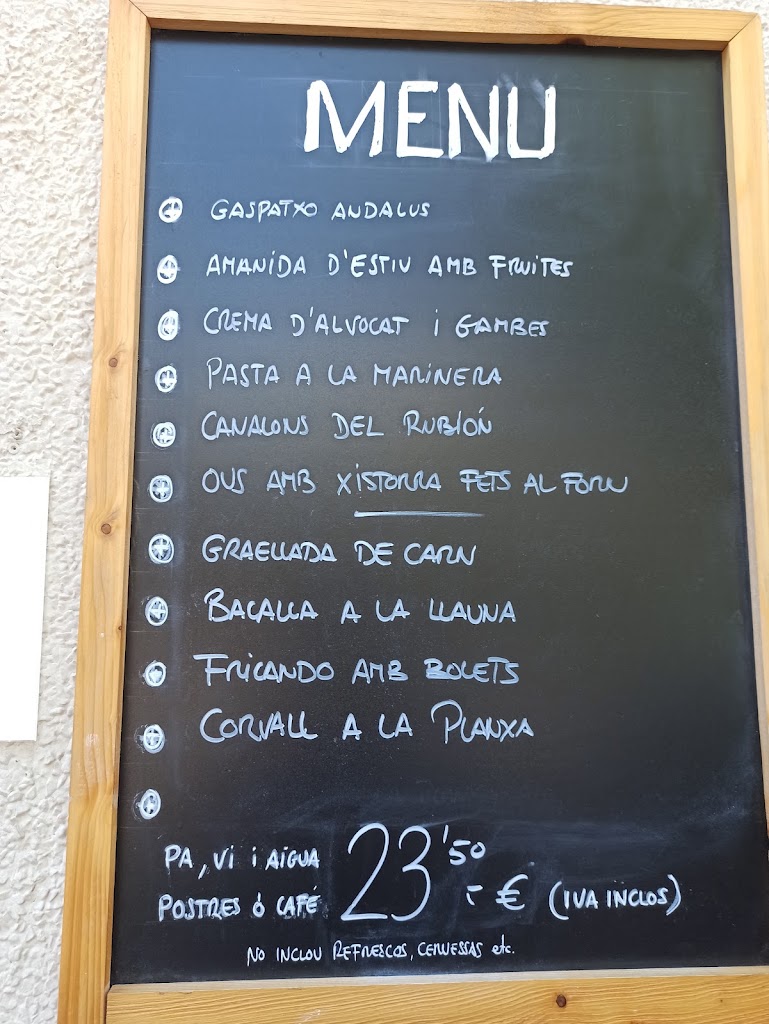 MENU
GASPATXO ANDALUS
AMANIDA D'ESTIU AMB FRUITES
CREMA D'ALVOCAT i GAMBES
PASTA A LA MARINERA
CANALONS DEL RUBIÓN
OUS AMB XISTORRA FETS AL FORN
GRAELLADA DE CARN
BACALLA A LA LLAUNA
FRICANDO AMB BOLETS
CORVALL A LA PLANXA
PA, Vi i AIGUA
POSTRES ó CAFÉ 23'50 - € (IVA INCLOS)
NO INCLOU REFRESCOS, CERVESSAS etc.